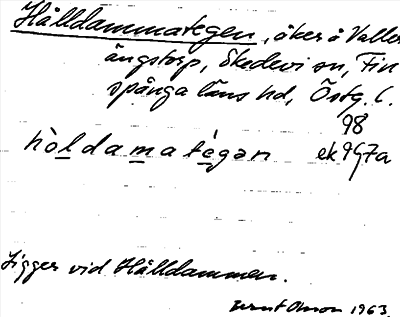 Hålldammategen, åker å Valler
ängstorp, Skedevi sn, Fin
spånga läns hd, Östg. l.
98
hòldamatègən ek 9G7a
Ligger vid Hålldammen.
1963.